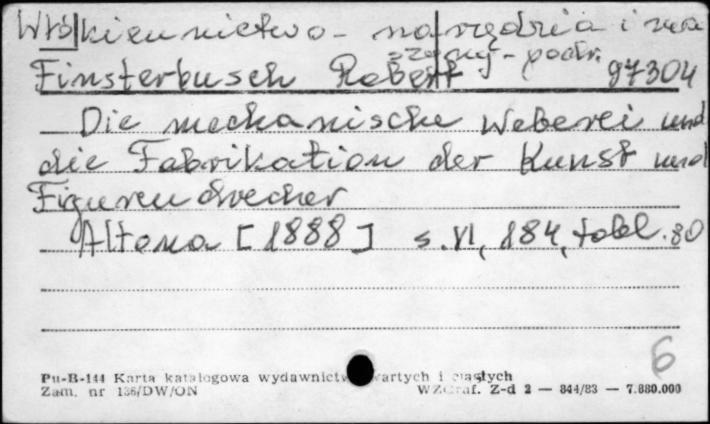 Włókiennictwo - narzędzia i ma
szyny - podr.
Finsterbusch Robert 97304
Die mechanische Weberei und
die Fabrikation der Kunst und
Figurendrecher
Altona [1888] s. VI, 184, tabl. 80
6
Pu-B-144 Karta katalogowa wydawnictw zwartych i ciągłych
Zam. nr 136/DW/ON WZGraf. Z-d 2 — 844/83 — 7.880.000